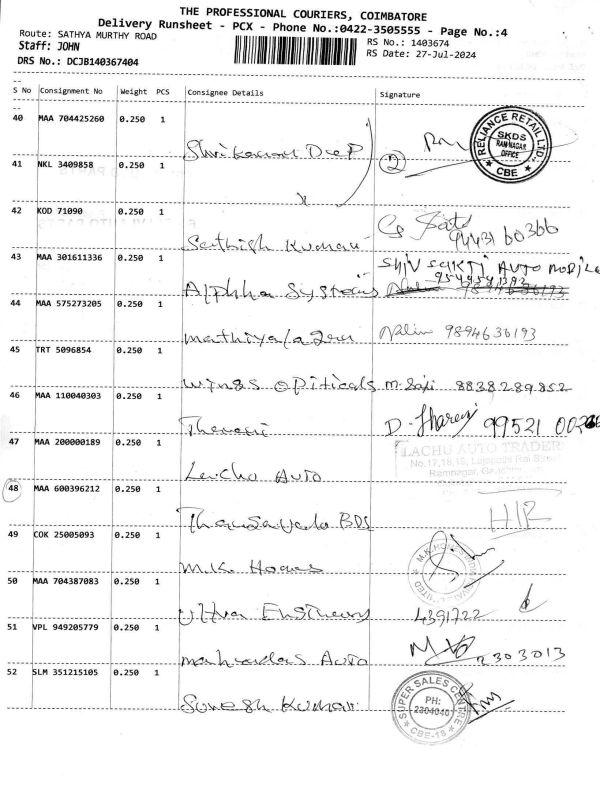 THE PROFESSIONAL COURIERS, COIMBATORE
Delivery Runsheet - PCX - Phone No.:0422-3505555 - Page No.:4
Route: SATHYA MURTHY ROAD
RS No.: 1403674
Staff: JOHN
RS Date: 27-Jul-2024
DRS No.: DCJB140367404
S No Consignment No Weight PCS Consignee Details Signature
40 MAA 704425260 0.250 1
RELIANCE RETAIL LTD. SKDS RAM NAGAR OFFICE CBE
2
41 NKL 3409858 0.250 1
42 KOD 71090 0.250 1
Sathish Kumar
43 MAA 301611336 0.250 1
SHIV SAKTI AUTO MOBILE
Alphha Systems
44 MAA 575273205 0.250 1
Mathiyalagan Nalini 9894636193
45 TRT 5096854 0.250 1
Wings Opiticals M. Saji 8838289852
46 MAA 110040303 0.250 1
D.
47 MAA 200000189 0.250 1
LACHU AUTO TRADER
No.17,18,19, Lajapathi Rai
Ramnagar,
Lachu Auto
48 MAA 600396212 0.250 1
BDS
49 COK 25005093 0.250 1
M.K.
50 MAA 704387083 0.250 1
Ultra 4391722
51 VPL 949205779 0.250 1
Auto 2303013
52 SLM 351215105 0.250 1
SUPER SALES CENTRE PH: 2304040 CBE-18
Suresh Kumar